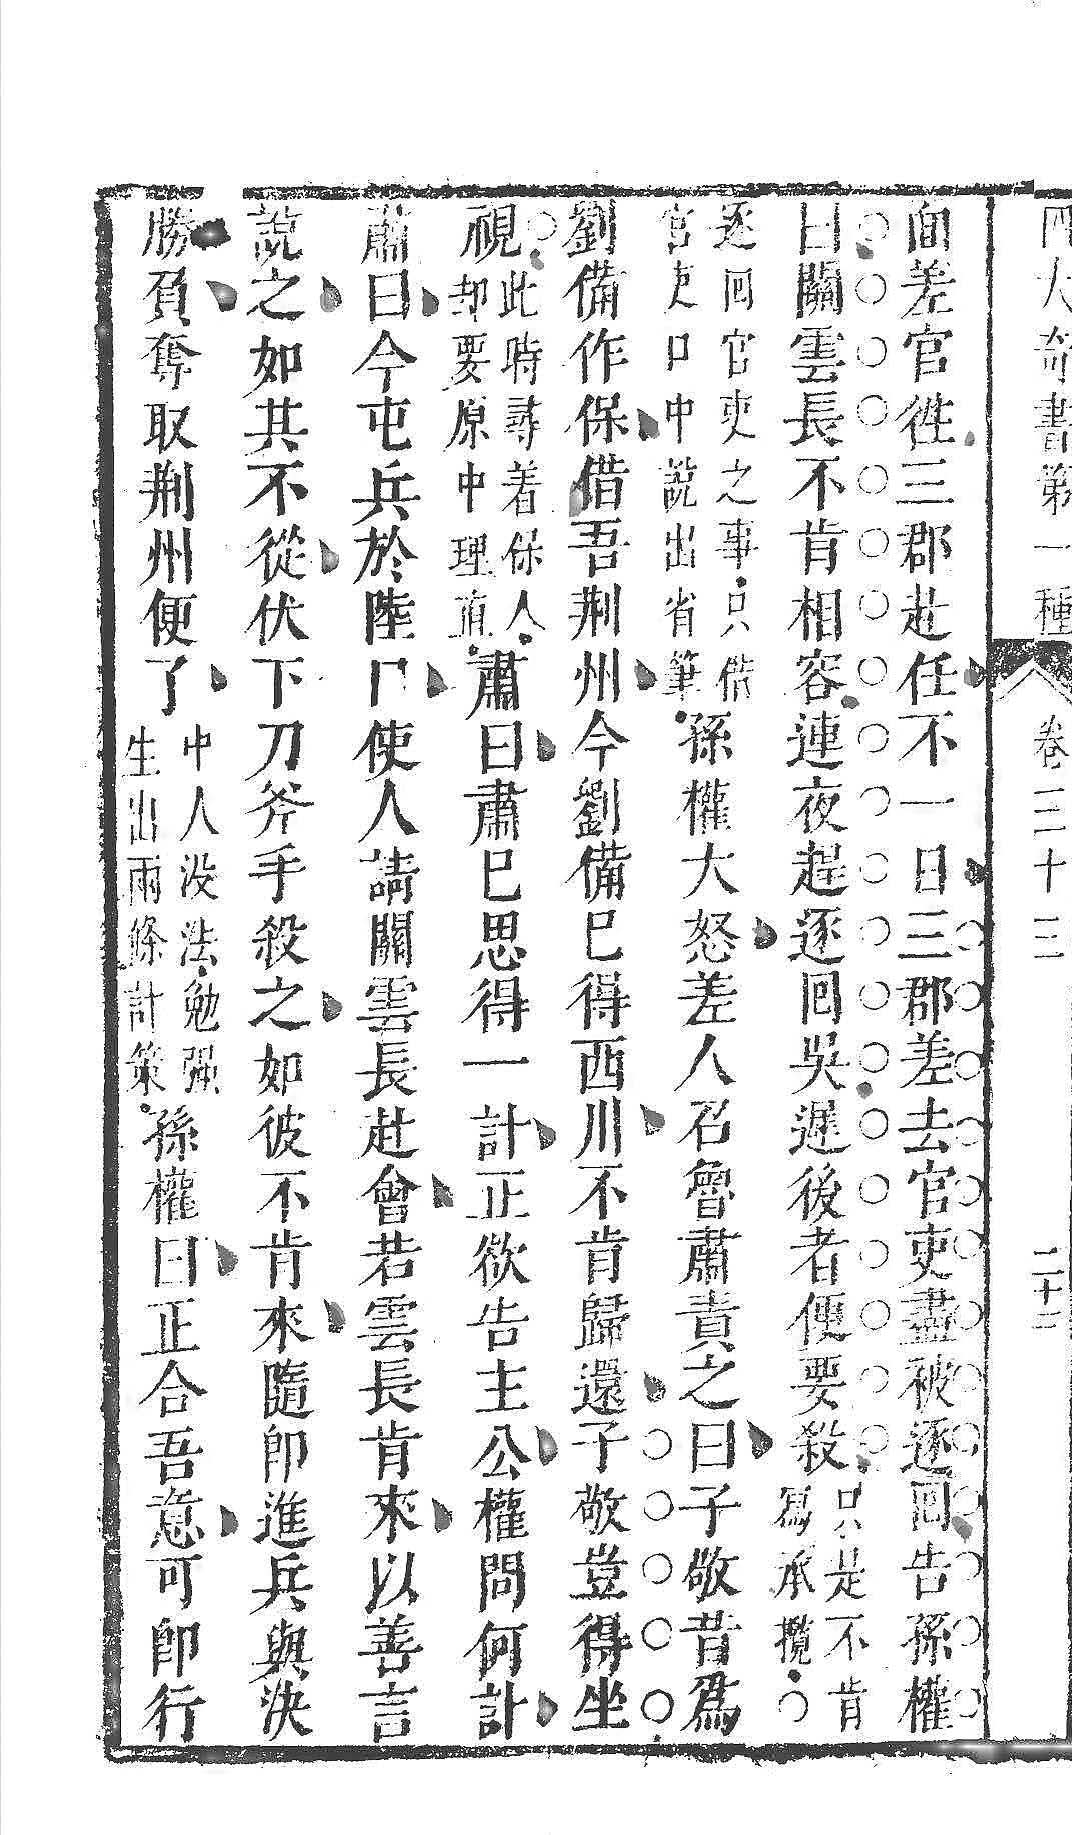 四大奇書第一種 卷三十三
面差官徃三郡赴任不一日三郡差去官吏盡被逐囘告孫權
曰關雲長不肯相容連夜趕逐囘吳遲後者便要殺只是不肯寫承攬
逐囘官吏之事只借官吏口中說出省筆孫權大怒差人召魯肅責之曰子敬昔爲
劉備作保借吾荆州今劉備巳得西川不肯歸還子敬豈得坐
視此時尋着保人却要原中理直肅曰肅巳思得一計正欲告主公權問何計
肅曰今屯兵於陸口使人請關雲長赴會若雲長肯來以善言
說之如其不從伏下刀斧手殺之如彼不肯來隨卽進兵與決
勝負奪取荆州便了中人没法勉强生出兩條計策孫權曰正合吾意可卽行